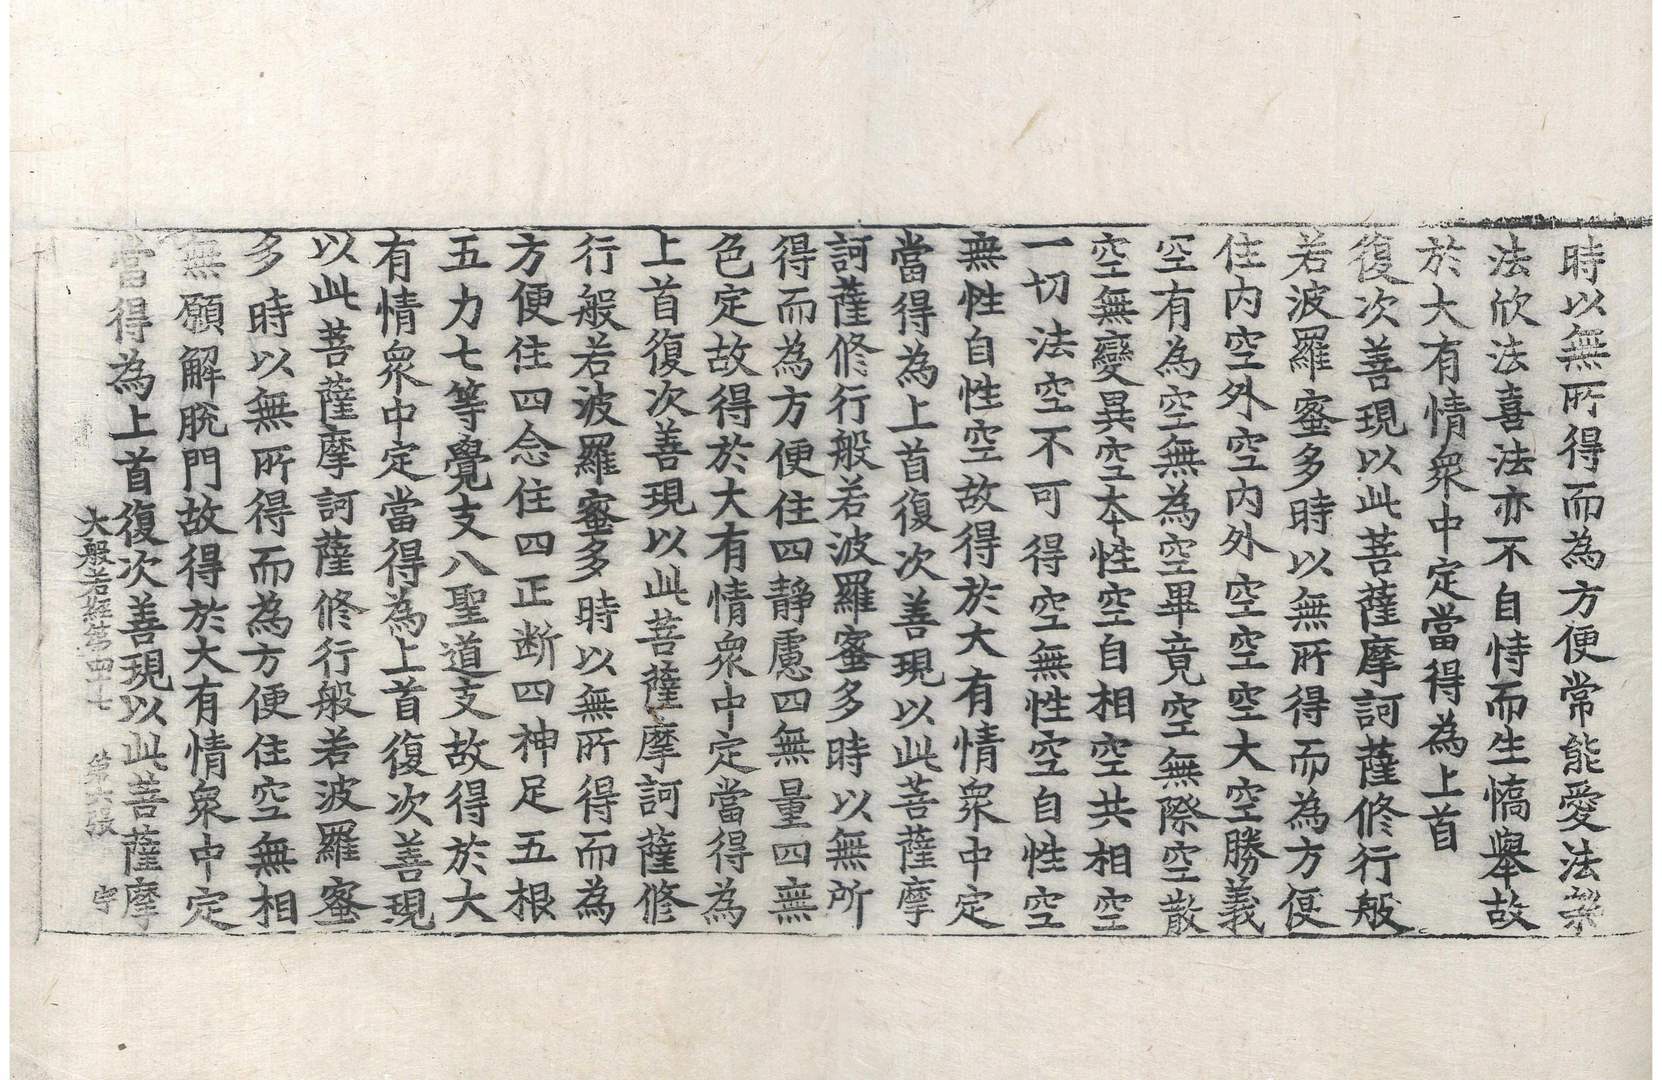 時以無所得而為方便常能愛法樂
法欣法喜法亦不自恃而生憍舉故
於大有情衆中定當得為上首
復次善現以此菩薩摩訶薩修行般
若波羅蜜多時以無所得而為方便
住內空外空內外空空空大空勝義
空有為空無為空畢竟空無際空散
空無變異空本性空自相空共相空
一切法空不可得空無性空自性空
無性自性空故得於大有情衆中定
當得為上首復次善現以此菩薩摩
訶薩修行般若波羅蜜多時以無所
得而為方便住四靜慮四無量四無
色定故得於大有情衆中定當得為
上首復次善現以此菩薩摩訶薩修
行般若波羅蜜多時以無所得而為
方便住四念住四正斷四神足五根
五力七等覺支八聖道支故得於大
有情衆中定當得為上首復次善現
以此菩薩摩訶薩修行般若波羅蜜
多時以無所得而為方便住空無相
無願解脫門故得於大有情衆中定
當得為上首復次善現以此菩薩摩
大般若經第四十七 第六張 宇